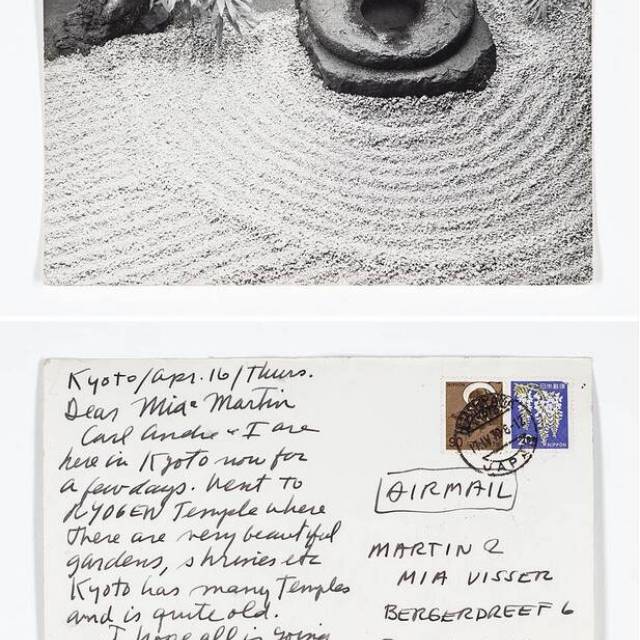 Kyoto/Apr. 16/Thurs.
Dear Mia & Martin
Carl Andre & I are
here in Kyoto now for
a few days. Went to
RYOGEN Temple where
there are very beautiful
gardens, shrines etc
Kyoto has many Temples
and is quite old.
I hope all is going
90
NIPPON
日本郵便
20
NIPPON
JAPAN
AIRMAIL
MARTIN &
MIA VISSER
BERGERDREEF 6